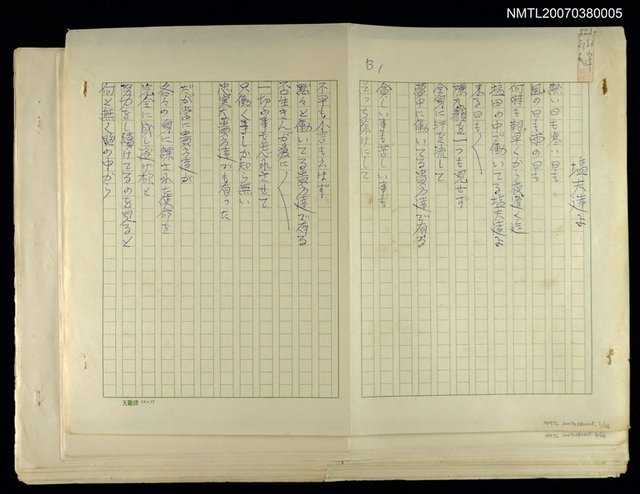 NMTL20070380005
B1
塩夫達よ
熱い日も寒い日も
風の日も雨の日も
何時も朝早くから夜遅く迄
塩田の中で働いている塩夫達よ
来る日も〳〵
嫌な顔を一つも見せず
全身に汗を流して
夢中に働いてる貴方達で有る
愉しい事も苦しい事も
そっち除けにして
不平も不言も云はず
黙々と働いてる貴方達で有る
否生きんが為に〳〵
一切の事も忘れさせて
只働く事しか知ら無い
忠実な貴方達でも有った
だが常に貴方達が
各々の身に課された使命を
完全に成し遂げ様と
努力を続けてるのを見ると
何と無く胸の中から
天龍牌 24×25
NMTL 20070380005 1/26
NMTL 20070380005 2/26